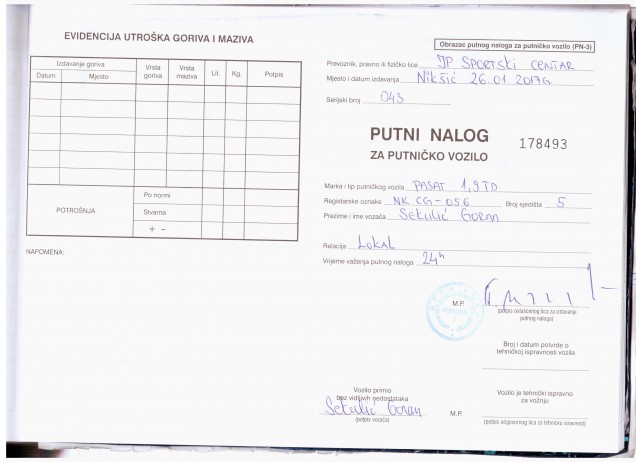 EVIDENCIJA UTROŠKA GORIVA I MAZIVA
Izdavanje goriva
Datum Mjesto Vrsta goriva Vrsta maziva Lit. Kg. Potpis
POTROŠNJA
Po normi
Stvarna
+ -
NAPOMENA:
Obrazac putnog naloga za putničko vozilo (PN-3)
Prevoznik, pravno ili fizičko lice JP SPORTSKI CENTAR
Mjesto i datum izdavanja Nikšić 26.01 2017G
Serijski broj 043
PUTNI NALOG
ZA PUTNIČKO VOZILO
178493
Marka i tip putničkog vozila PASAT 1,9TD
Registarske oznake NK CG-056 Broj sjedišta 5
Prezime i ime vozača Sekulić Goran
Relacija LOKAL
Vrijeme važenja putnog naloga 24h
M.P.
(potpis ovlašćenog lica za izdavanje
putnog naloga)
Broj i datum potvrde o
tehničkoj ispravnosti vozila
Vozilo primio
bez vidljivih nedostataka
Sekulić Goran
(potpis vozača)
M.P.
Vozilo je tehnički ispravno
za vožnju
(potpis odgovornog lica za tehničku ispravnost)